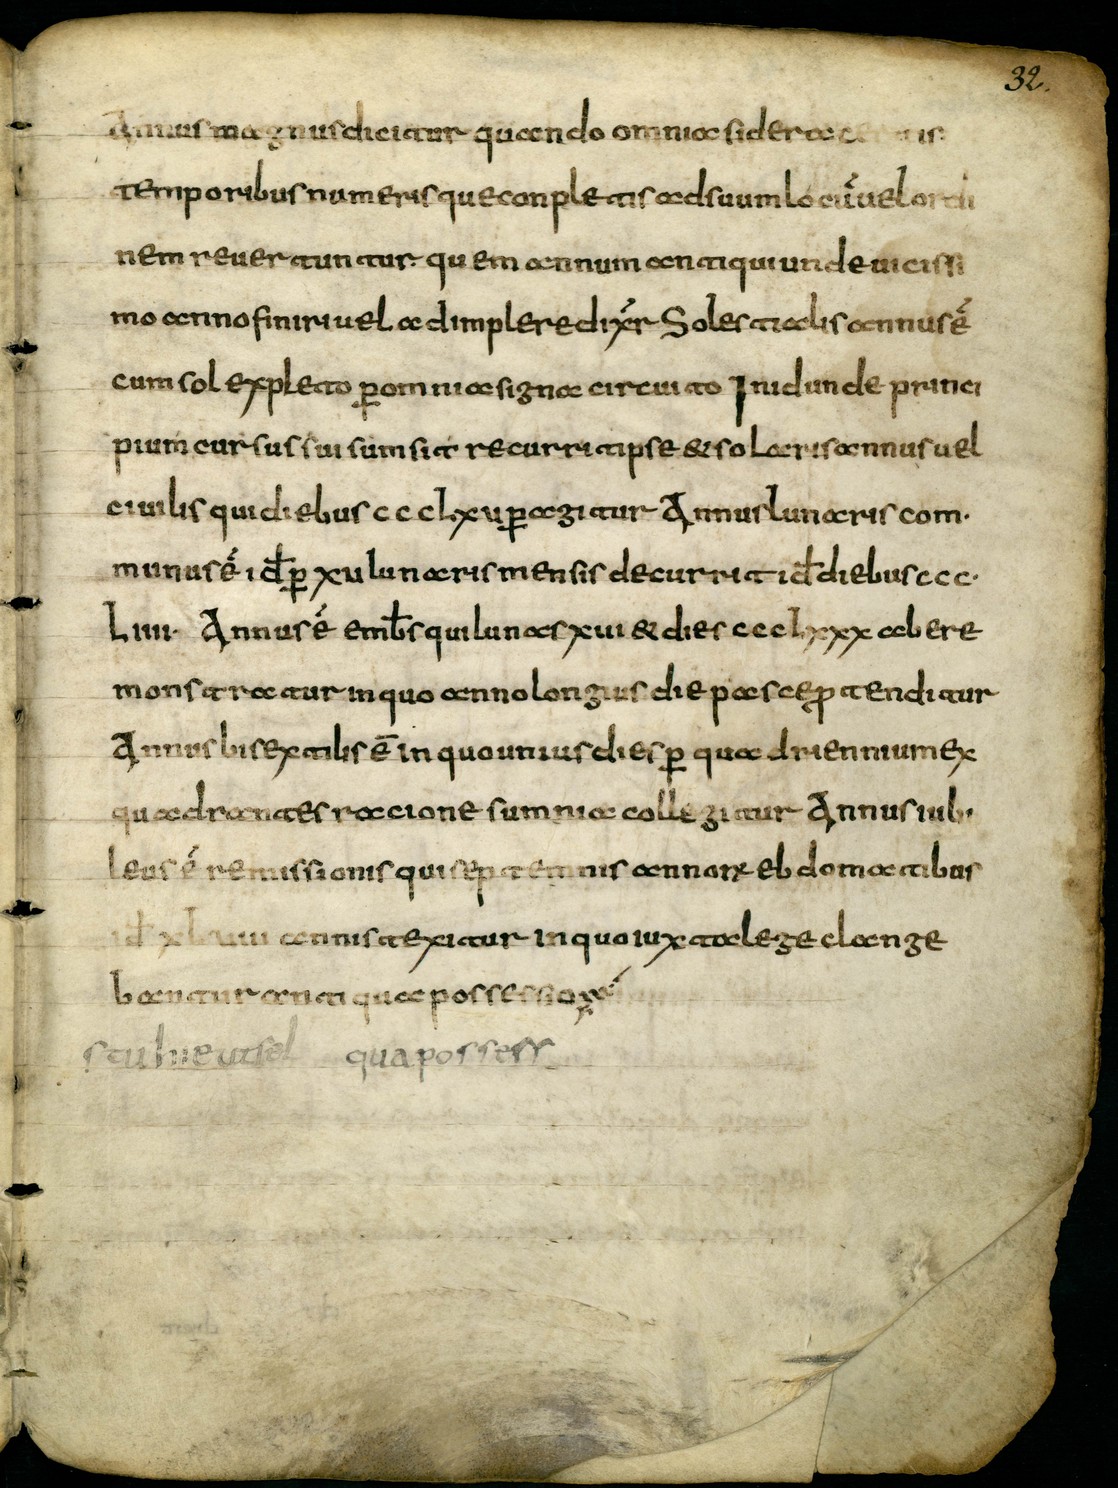 32.
Annus magnus dicitur quando omnia sidera certis
temporibus numerisque conpletis ad suum locū uel ordi
nem reuertuntur quem annum antiqui undeuicissi
mo anno finiri uel adimplere dixer̄ Solestialis annus ē
cum sol expleto ꝑ omnia signa circuito In id unde princi
pium cursus sui sumsit recurrit ipse & solaris annus uel
ciuilis qui diebus ccclxv ꝑagitur Annus lunaris com·
munus ē id̄ ꝑ xii lunaris mensis decurrit id̄ diebus ccc·
Liiii· Annus ē emb̄s qui lunas xiii & dies ccclxxx abere
monstratur in quo anno longius die pasce ꝓtenditur
Annus bisextilis ē in quo unius dies ꝑ quadriennium ex
quadrantes racione summa collegitur Annus iubi
leus ē remissionis qui septemnis annorꝝ ebdomatibus
id̄ xlviiii annis texitur in quo iuxta lege clange
bantur antiqua possessio
qua possess